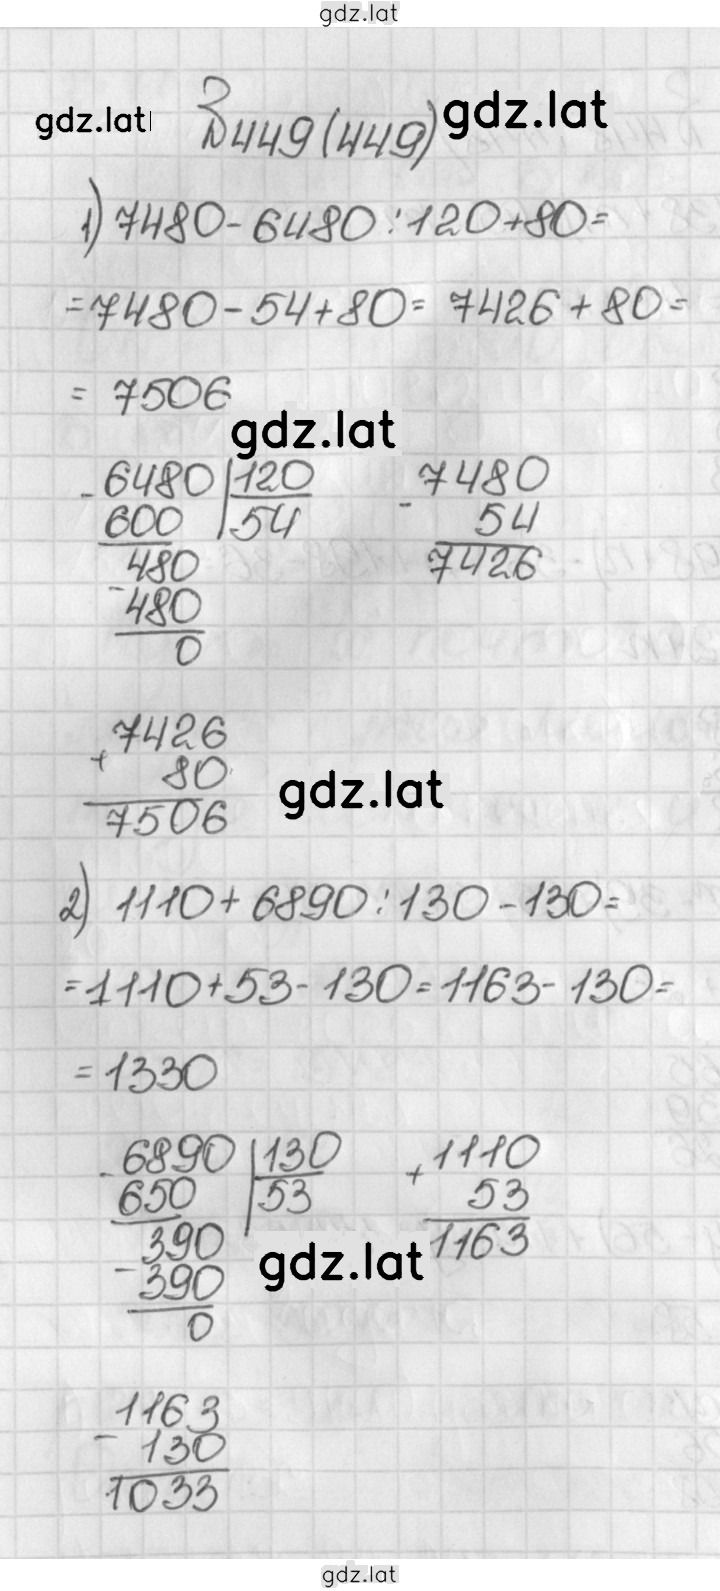 gdz.lat
gdz.lat №449(449) gdz.lat
1) 7480-6480:120+80=
=7480-54+80= 7426+80=
= 7506
gdz.lat
- 6480 | 120
600 | 54
480
- 480
0
- 7480
54
7426
7426
+ 80
7506
gdz.lat
2) 1110+6890:130-130=
=1110+53-130=1163-130=
=1330
- 6890 | 130
650 | 53
390
- 390
0
+ 1110
53
1163
gdz.lat
1163
- 130
1033
gdz.lat